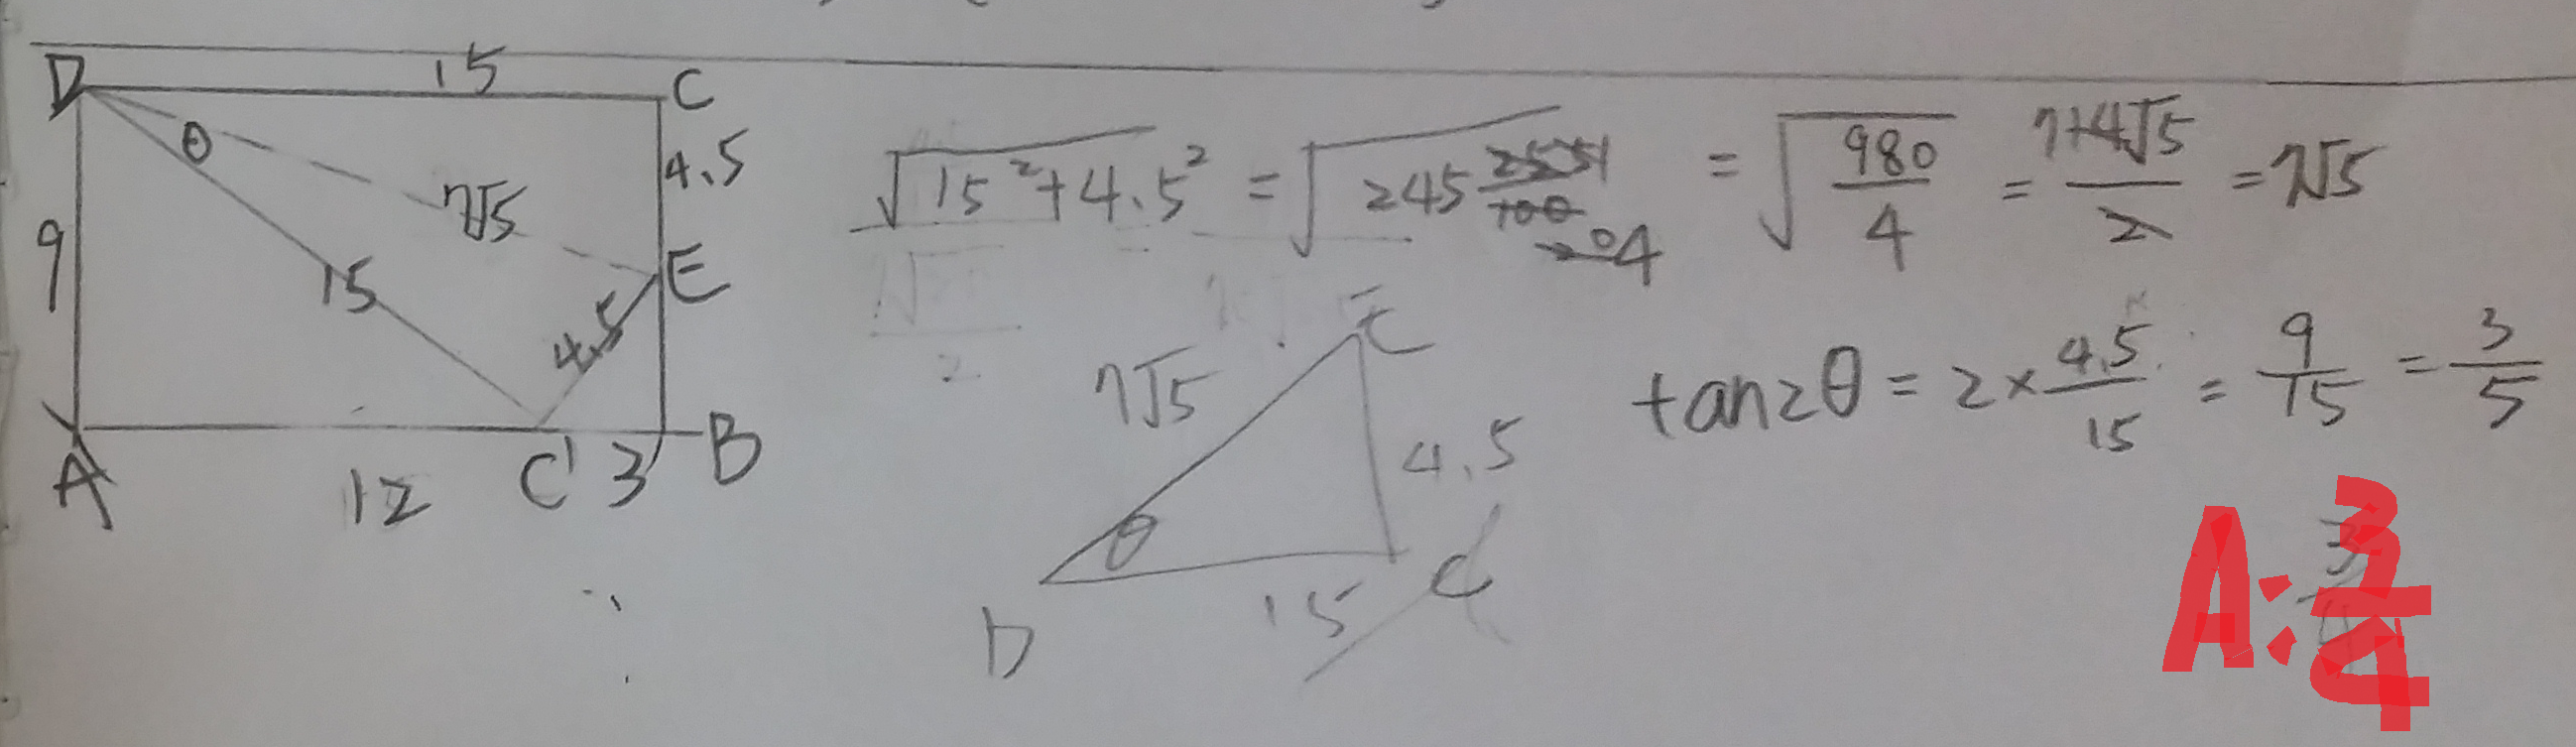 D 15 C
θ
4.5
7√5
9
15
E
4.5
A 12 C' 3 B
√15²+4.5² = √245 4 = √980/4 = 7+4√5/2 = 7√5
E
7√5
4.5
θ
D 15 C
tan2θ = 2 × 4.5/15 = 9/15 = 3/5
A: 3/4